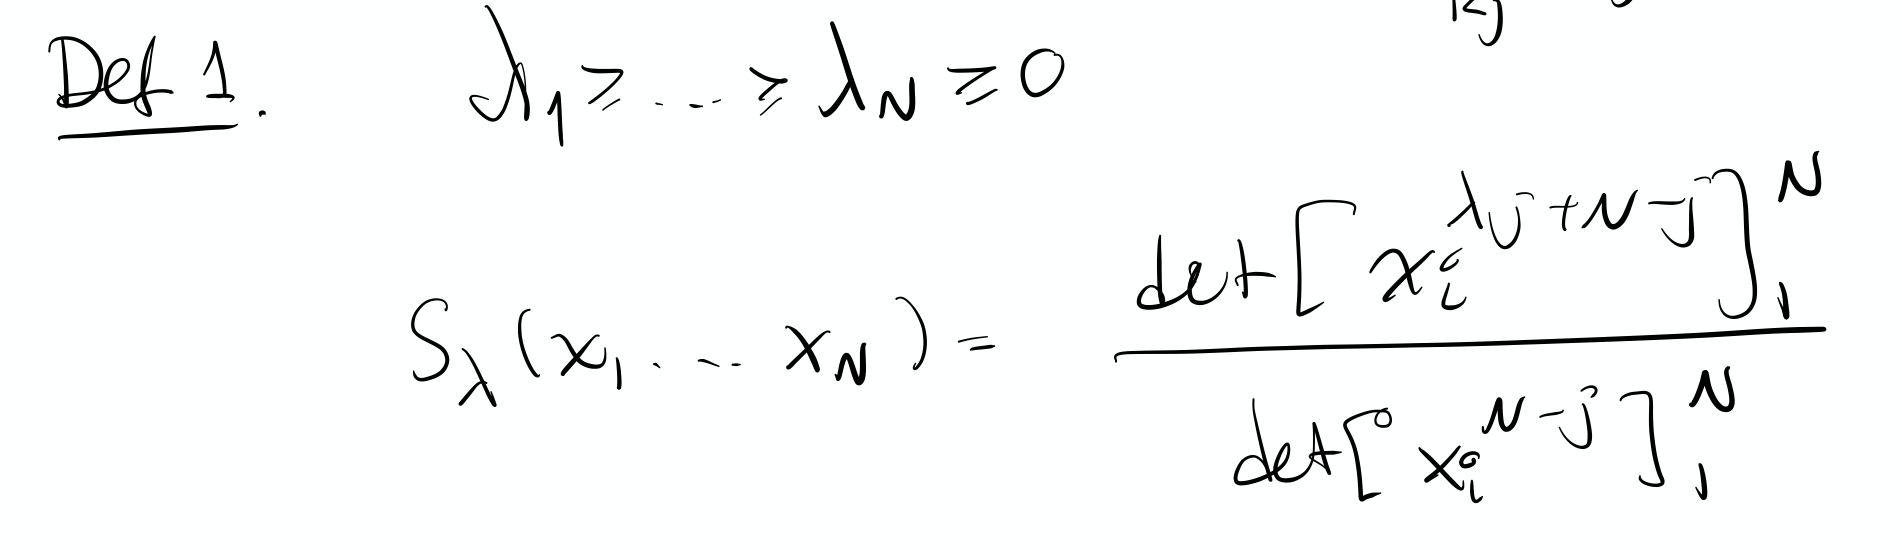 Def 1. λ₁ ≥ ... ≥ λ_N ≥ 0
S_λ(x₁ ... x_N) = det[x_i^{λ_j+N-j}]₁^N / det[x_i^{N-j}]₁^N